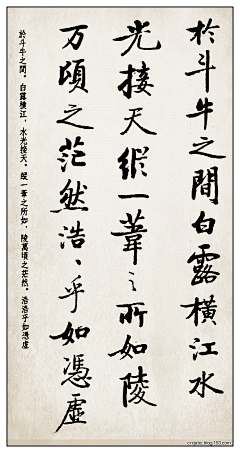 於斗牛之間白露橫江水
光接天縱一葦之所如陵
万頃之茫然浩〻乎如憑虛
於斗牛之間。白露橫江，水光接天。縱一葦之所如，陵萬頃之茫然。浩浩乎如憑虛
cnlpbz.blog.163.com